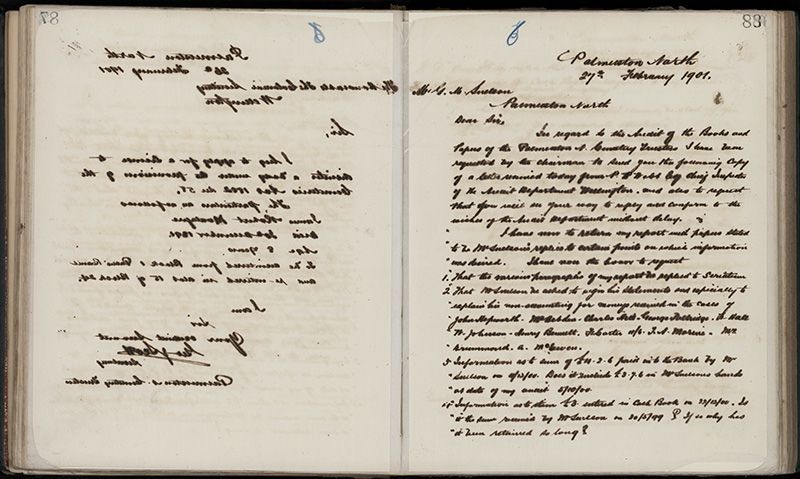 87
Palmerston North
February 1901
The Honorable The Colonial Secretary
Wellington
Sir,
I beg to apply for a license to
disinter a body under the provisions of the
Cemeteries Act 1882 Sec 57.
The particulars are as follows
James Robert
Died December 1891
Age 8 years
To be disinterred from Block 1
and re interred in Lot 15 of Block 24.
I am
Sir
Your obedient servant
Secretary
Palmerston N. Cemetery Trustees
88
Palmerston North
27th February 1901.
Mr G. M. Snelson
Palmerston North
Dear Sir,
In regard to the Audit of the Books and
Papers of the Palmerston N. Cemetery Trustees I have been
requested by the Chairman to send you the following Copy
of a letter received today from P. P. Webb Esq Chief Inspector
of the Audit Department Wellington, and also to request
that you will see your way to reply and conform to the
wishes of the Audit Department without delay.
" I have now to return my report with papers attached
" to Mr Snelson's replies to certain points on which information
" was desired. I have now the honor to request
1. That the various paragraphs of my report be replied to Seriatim
2. That Mr Snelson be asked to sign his statements and especially to
" explain his non-accounting for moneys received in the cases of
" John Hopworth. Charles Nott. George Kettridge. Hall
" W. Johnson. Henry Bennett. F. Carter Mr
" Drummond. A. McEwen.
3 Information as to sum of £11.2.6 paid into the Bank by Mr
" Snelson on 4/12/00. Does it include £2.7.6 in Mr Snelsons hands
" at date of my audit 5/10/00
4 Information as to item £3 entered in Cash Book on 22/12/00. Is
" it the sum received by Mr Snelson on 30/5/99? If so why has
" it been retained so long?